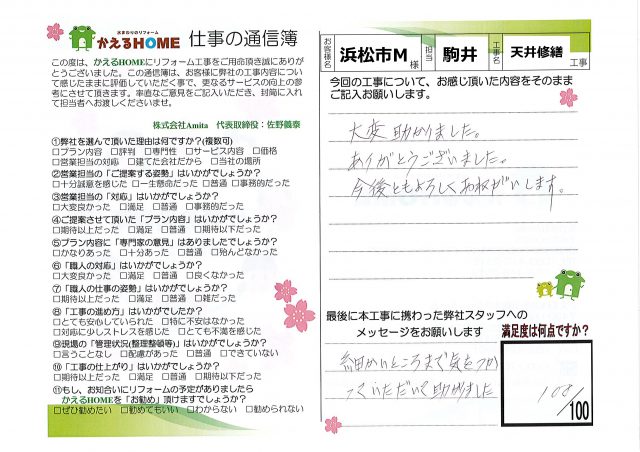 水まわりのリフォーム
かえるHOME 仕事の通信簿
この度は、かえるHOMEにリフォーム工事をご用命頂き誠にありが
とうございました。この通信簿は、お客様に弊社の工事内容につい
て感じたままに評価していただく事で、更なるサービスの向上の参
考にさせて頂きます。率直なご意見をご記入いただき、封筒に入れ
て担当者へお渡しくださいませ。
株式会社Amita 代表取締役：佐野義泰
①弊社を選んで頂いた理由は何ですか？(複数可)
□プラン内容 □評判 □専門性 □サービス内容 □価格
□営業担当の対応 □建てた会社だから □当社の場所
②営業担当の「ご提案する姿勢」はいかがでしょうか？
□十分誠意を感じた □一生懸命だった □普通 □事務的だった
③営業担当の「対応」はいかがでしょうか？
□大変良かった □満足 □普通 □事務的だった
④ご提案させて頂いた「プラン内容」はいかがでしょうか？
□期待以上だった □満足 □普通 □期待以下だった
⑤プラン内容に「専門家の意見」はありましたでしょうか？
□かなりあった □十分あった □普通 □殆んどなかった
⑥「職人の対応」はいかがでしょうか？
□大変良かった □満足 □普通 □良くなかった
⑦「職人の仕事の姿勢」はいかがでしょうか？
□期待以上だった □満足 □普通 □雑だった
⑧「工事の進め方」はいかがでしたか？
□とても安心していられた □特に不安はなかった
□対応に少しストレスを感じた □とても不満を感じた
⑨現場の「管理状況(整理整頓等)」はいかがでしょうか？
□言うことなし □配慮があった □普通 □できていない
⑩「工事の仕上がり」はいかがでしょうか？
□期待以上だった □満足 □普通 □期待以下だった
⑪もし、お知合いにリフォームの予定がありましたら
かえるHOMEを「お勧め」頂けますでしょうか？
□ぜひ勧めたい □勧めてもいい □わからない □勧められない
お客様名 浜松市M 様 担当 駒井 工事名 天井修繕 工事
今回の工事について、お感じ頂いた内容をそのまま
ご記入お願いします。
大変助かりました。
ありがとうございました。
今後ともよろしくおねがいします。
最後に本工事に携わった弊社スタッフへの
メッセージをお願いします
細かいところまで気をつか
っていただいて助かりました
満足度は何点ですか？
100/100